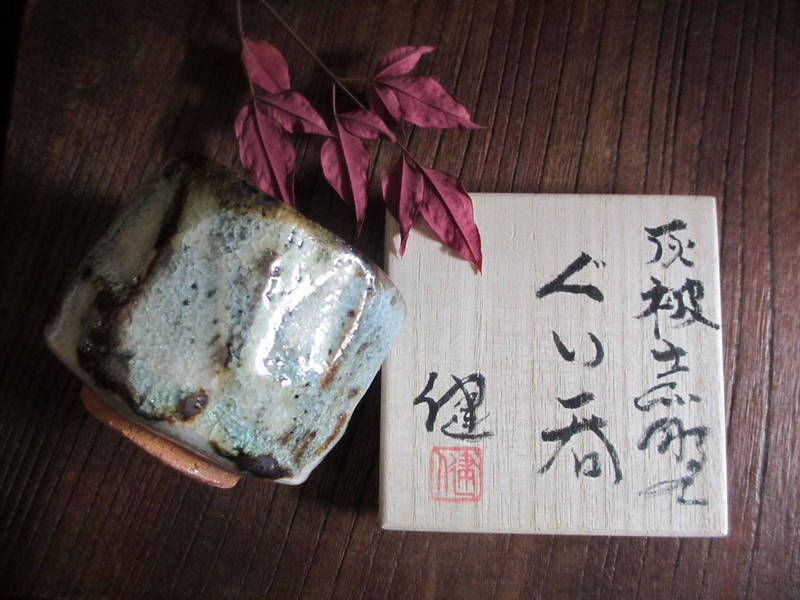 灰被志野
ぐい呑
健
健